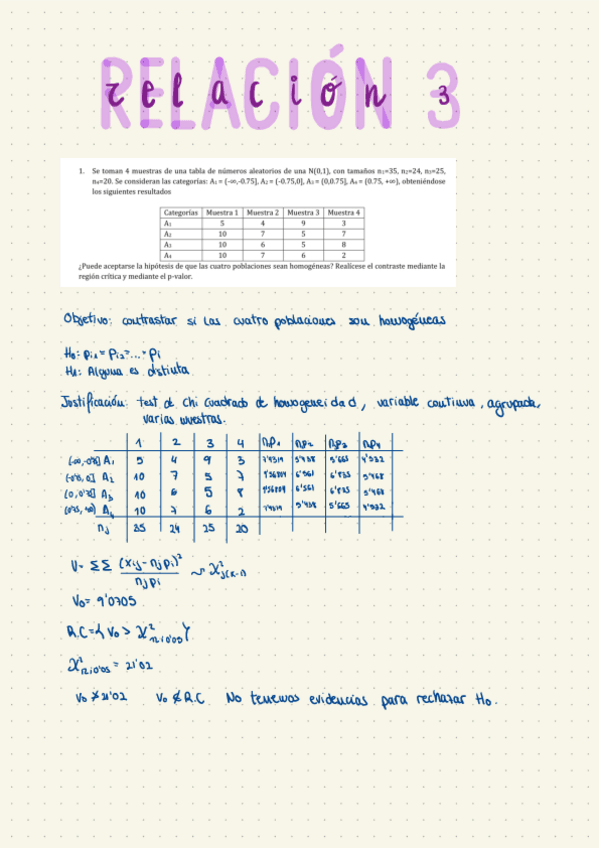 RELACIÓN 3
relación 3
1. Se toman 4 muestras de una tabla de números aleatorios de una N(0,1), con tamaños n₁=35, n₂=24, n₃=25,
n₄=20. Se consideran las categorías: A₁ = (-∞,-0.75], A₂ = (-0.75,0], A₃ = (0,0.75], A₄ = (0.75, +∞), obteniéndose
los siguientes resultados
Categorías Muestra 1 Muestra 2 Muestra 3 Muestra 4
A₁ 5 4 9 3
A₂ 10 7 5 7
A₃ 10 6 5 8
A₄ 10 7 6 2
¿Puede aceptarse la hipótesis de que las cuatro poblaciones sean homogéneas? Realícese el contraste mediante la
región crítica y mediante el p-valor.
Objetivo: contrastar si las cuatro poblaciones son homogéneas
H₀: pi₁ = pi₂ = ... = pi
H₁: Alguna es distinta
Justificación: test de Chi Cuadrado de homogeneidad, variable continua, agrupada,
varias muestras.
1 2 3 4 np₁ np₂ np₃ np₄
A₁ 5 4 9 3 5'665
A₂ 10 7 5 7 6'561
A₃ 10 6 5 8 6'561
A₄ 10 7 6 2 5'665
nj 35 24 25 20
V= ΣΣ (xij - njpi)² / njpi ~ χ²j(k-1)
V₀= 9'0705
R.C={V₀ > χ²12;0'05}
χ²12;0'05 = 21'02
V₀ ≯ 21'02 V₀ ∉ R.C No tenemos evidencias para rechazar H₀.